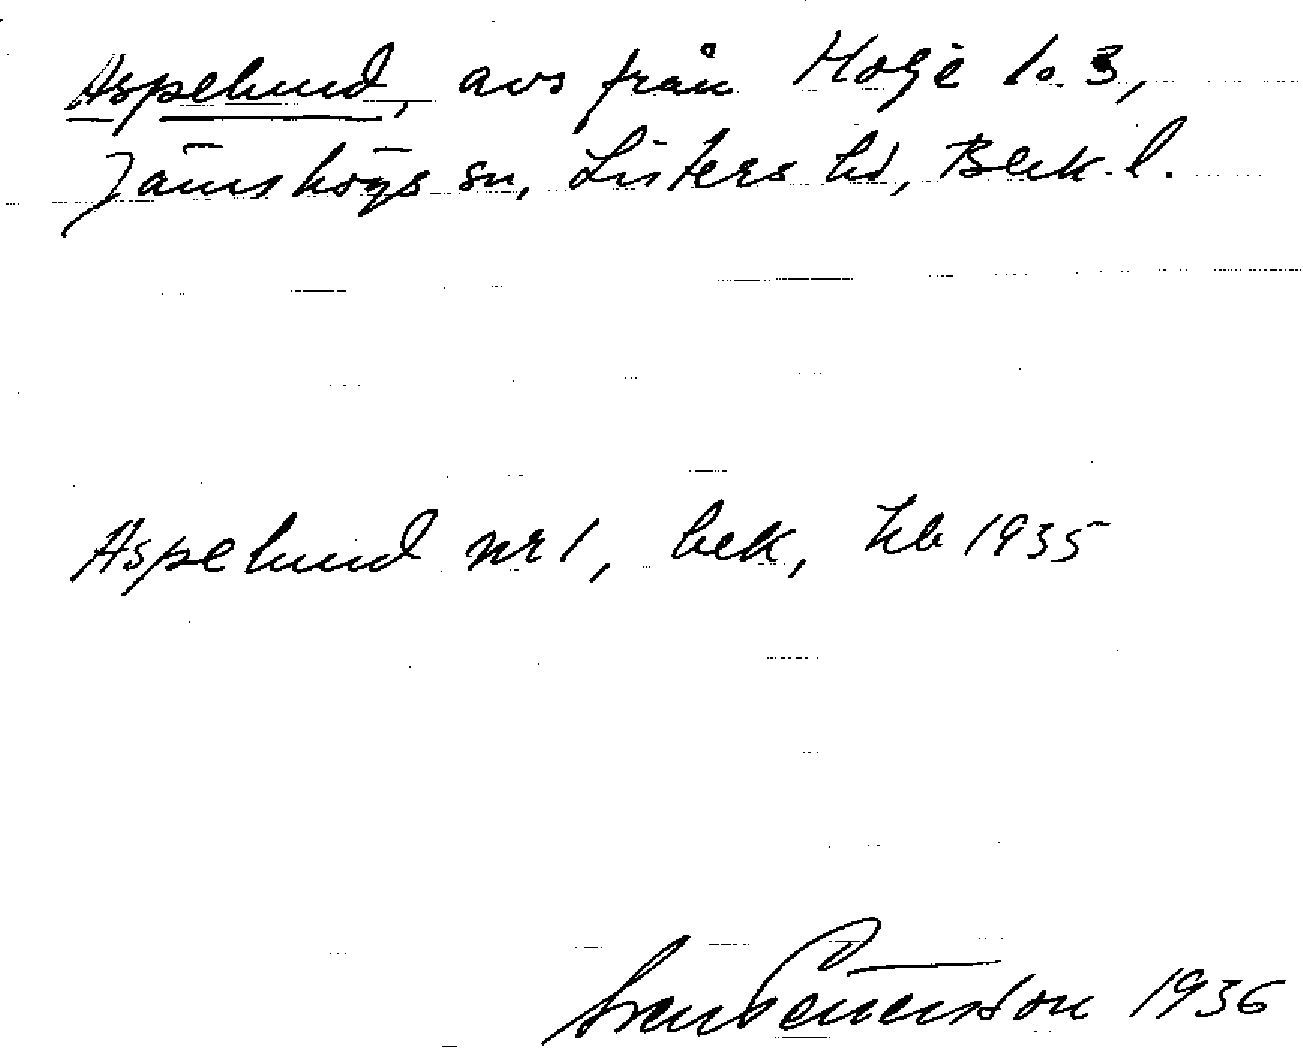 Aspelund, avs från Holje 1o.3,
Jämshögs sn, Listers hd, Blek. l.
Aspelund nr 1, bek, hb 1935
Sven Benson 1936